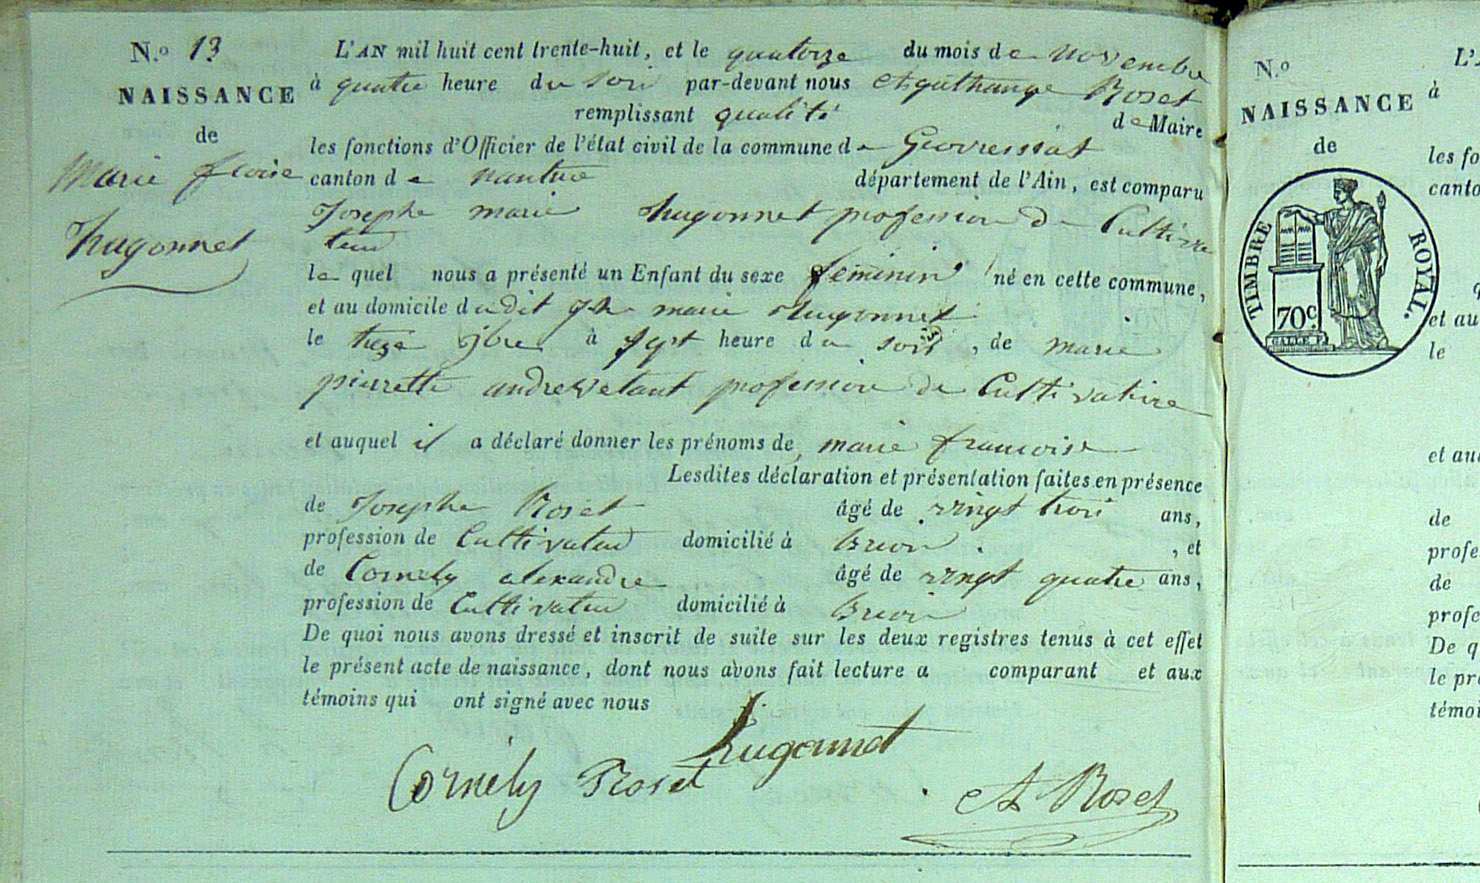 N.º 13
NAISSANCE
de
Marie fcoise
hugonnet
L'AN mil huit cent trente-huit, et le quatorze du mois de novembre
à quatre heure du soir par-devant nous Roset
remplissant qualité de Maire
les fonctions d'Officier de l'état civil de la commune de Geovressiat
canton de nantua département de l'Ain, est comparu
Josephe marie hugonnet profession de Cultiva
teur
le quel nous a présenté un Enfant du sexe feminin né en cette commune,
et au domicile dudit jh marie hugonnet
le treze 9bre à sept heure du soir, de marie
pierrette andrevetant profession de Cultivatrice
et auquel il a déclaré donner les prénoms de marie francoise
Lesdites déclaration et présentation faites en présence
de Josephe Roset âgé de vingt trois ans,
profession de Cultivateur domicilié à Brion, et
de Cornely alexandre âgé de vingt quatre ans,
profession de Cultivateur domicilié à Brion
De quoi nous avons dressé et inscrit de suite sur les deux registres tenus à cet effet
le présent acte de naissance, dont nous avons fait lecture a comparant et aux
témoins qui ont signé avec nous
hugonnet
Cornély Roset A Roset
N.º
NAISSANCE
de
TIMBRE ROYAL.
70 c.
L'A
à
les fo
canto
q
et au
le
et au
de
profe
de
profe
De q
le pré
témoi